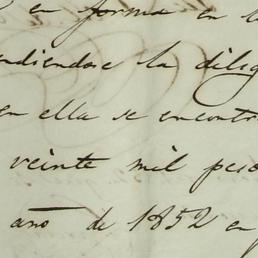 en forma en la
ndiendose la dilig
en ella se encontr
veinte mil peso
año de 1852 en